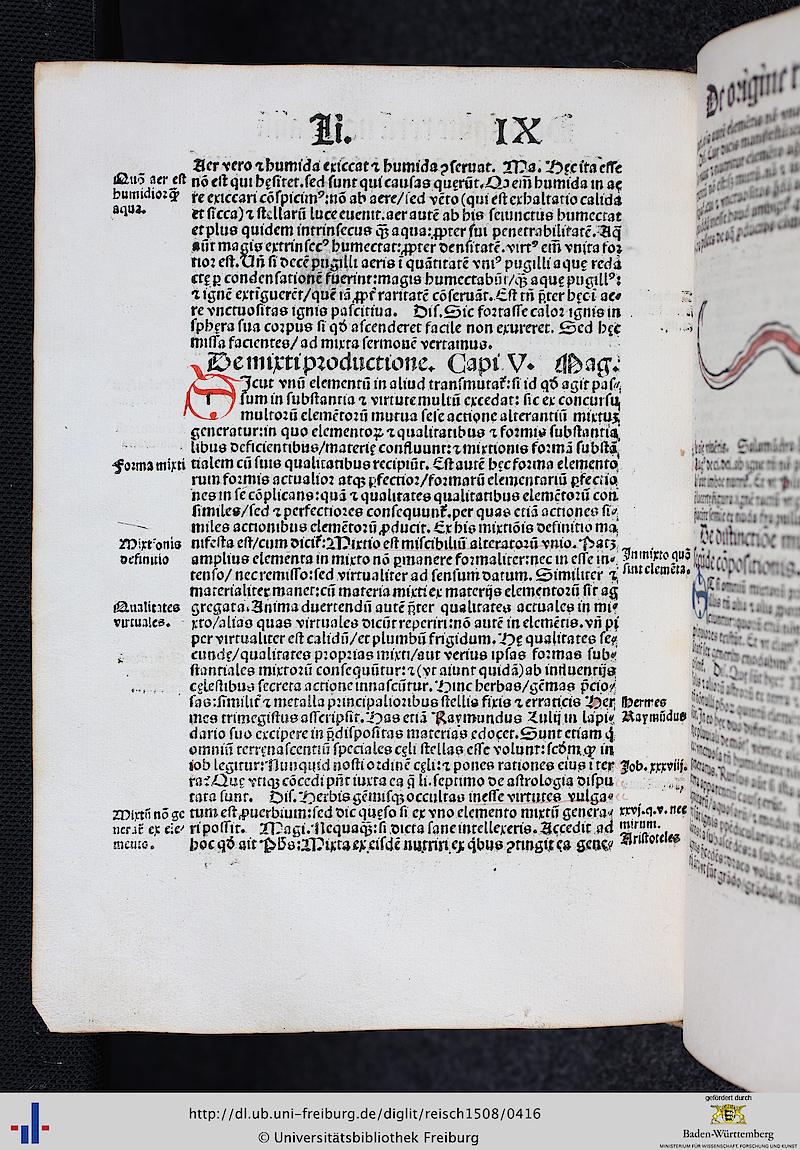 Li. IX
Aer vero ⁊ humida exiccat ⁊ humida ꝯseruat. Ma. Hęc ita esse
Quō aer est
humidiorq̄ȝ
aqua.
nō est qui hęsitet. sed sunt qui causas querūt. Q em̄ humida in ae
re exiccari cōspicimꝰ: nō ab aere/ sed vēto (qui est exhaltatio calida
et sicca) ⁊ stellarū luce euenit. aer autē ab his seiunctus humectat
et plus quidem intrinsecus q̄ȝ aqua: ꝓpter sui penetrabilitatē. Aq̄
aūt magis extrinsecꝰ humectat: ꝓpter densitatē. virtꝰ em̄ vnita for
tior est. Vn̄ si decē pugilli aeris ī quātitatē vniꝰ pugilli aquę reda
ctę ꝑ condensationē fuerint: magis humectabūt/ q̄ȝ aquę pugillꝰ:
⁊ ignē extīguerēt/ quē iā ꝓpt̄ raritatē cōseruāt. Est tn̄ p̄ter hęc ī ae-
re vnctuositas ignis pascitiua. Dis. Sic fortasse calor ignis in
sphęra sua corpus si qd̄ ascenderet facile non exureret. Sed hęc
missa facientes/ ad mixta sermonē vertamus.
De mixti productione. Capi. V. Mag.
Sicut vnū elementū in aliud transmutat̄: si id qd̄ agit pas-
sum in substantia ⁊ virtute multū excedat: sic ex concursu
multorū elemētorū mutua sese actione alterantiū mixtuȝ
generatur: in quo elementoꝝ ⁊ qualitatibus ⁊ formis substantia
libus deficientibus/ materię confluunt: ⁊ mixtionis formā substā
Forma mixti
tialem cū suis qualitatibus recipiūt. Est autē hęc forma elemento
rum formis actualior atqȝ ꝑfectior/ formarū elementariū ꝑfectio
nes in se cōplicans: quā ⁊ qualitates qualitatibus elemētorū con
similes/ sed ⁊ perfectiores consequunt̄. per quas etiā actiones si-
miles actionibus elemētorū ꝓducit. Ex his mixtiōis definitio ma
Mixtionis
definitio
nifesta est/ cum dicit̄: Mixtio est miscibiliū alteratorū vnio. Patȝ
In mixto quō
sint elemēta.
amplius elementa in mixto nō ꝑmanere formaliter: nec in esse in-
tenso/ nec remisso: sed virtualiter ad sensum datum. Similiter ⁊
materialiter manet: cū materia mixti ex materijs elementorū sit ag
Qualitates
virtuales.
gregata. Anima duertendū autē p̄ter qualitates actuales in mi-
xto/ alias quas virtuales dicūt reperiri: nō autē in elemētis. vn̄ pi
per virtualiter est calidū/ et plumbū frigidum. Hę qualitates se-
cundę/ qualitates proprias mixti/ aut verius ipsas formas sub-
stantiales mixtorū consequūtur: ⁊ (vt aiunt quidā) ab influentijs
cęlestibus secreta actione innascūtur. Hinc herbas/ gēmas p̄cio-
sas: similit̄ ⁊ metalla principalioribus stellis fixis ⁊ erraticis Her
Hermes
Raymūdus
mes trimegistus asscripsit. Has etiā Raymundus Lulij in lapi-
dario suo excipere in p̄dispositas materias edocet. Sunt etiam q̄
omniū terrenascentiū speciales cęli stellas esse volunt: scd̄m qȝ in
Job. xxxviij.
iob legitur: Nunquid nosti ordinē cęli: ⁊ pones rationes eius ī ter
ra? Quę vtiqȝ cōcedi pn̄t iuxta ea q̄ li. septimo de astrologia dispu
tata sunt. Dis. Herbis gēmisqȝ occultas inesse virtutes vulga-
Mixtū nō ge
nerat̄ ex ele-
mento.
tum est ꝓuerbium: sed dic quęso si ex vno elemento mixtū genera-
xxvj. q. v. nec
mirum.
ri possit. Magi. Nequaqȝ: si dicta sane intellexeris. Accedit ad
Aristoteles
hoc qd̄ ait Ph̄s: Mixta ex eisdē nutriri ex q̄bus ꝯtingit ea gene-
De origine
De distinctiōe
cōpositionis.
http://dl.ub.uni-freiburg.de/diglit/reisch1508/0416
© Universitätsbibliothek Freiburg
gefördert durch
Baden-Württemberg
MINISTERIUM FÜR WISSENSCHAFT, FORSCHUNG UND KUNST